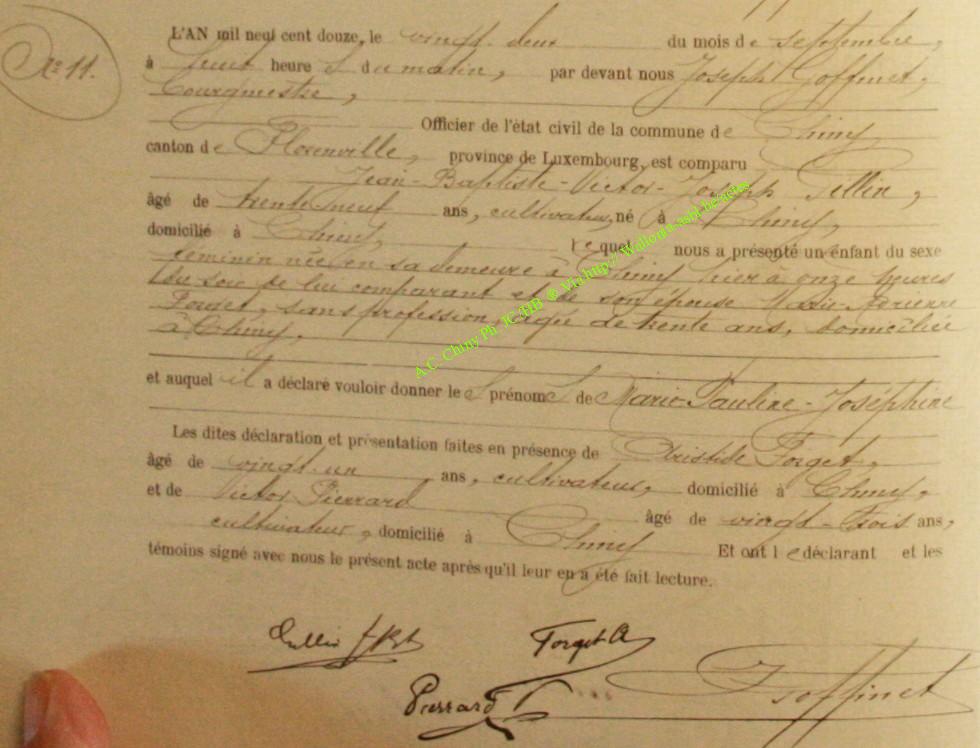 N° 11.
L'AN mil neuf cent douze, le vingt-deux du mois de septembre,
à huit heures du matin, par devant nous Joseph Goffinet,
bourgmestre,
Officier de l'état civil de la commune de Chiny,
canton de Florenville, province de Luxembourg, est comparu
Jean-Baptiste-Victor-Joseph Gillin,
âgé de trente-neuf ans, cultivateur, né à Chiny,
domicilié à Chiny, lequel nous a présenté un enfant du sexe
féminin née en sa demeure à Chiny hier à onze heures
du soir de lui comparant et de son épouse Marie
Forget, sans profession, âgée de trente ans, domiciliée
à Chiny,
et auquel il a déclaré vouloir donner les prénoms de Marie-Pauline-Joséphine
Les dites déclaration et présentation faites en présence de Aristide Forget,
âgé de vingt-un ans, cultivateur, domicilié à Chiny,
et de Victor Pierrard âgé de vingt-trois ans,
cultivateur, domicilié à Chiny Et ont le déclarant et les
témoins signé avec nous le présent acte après qu'il leur en a été fait lecture.
Forget A
Pierrard V
J Goffinet
A.C. Chiny Ph JC/HB ® Via http://Wallonia-asbl-be/actes